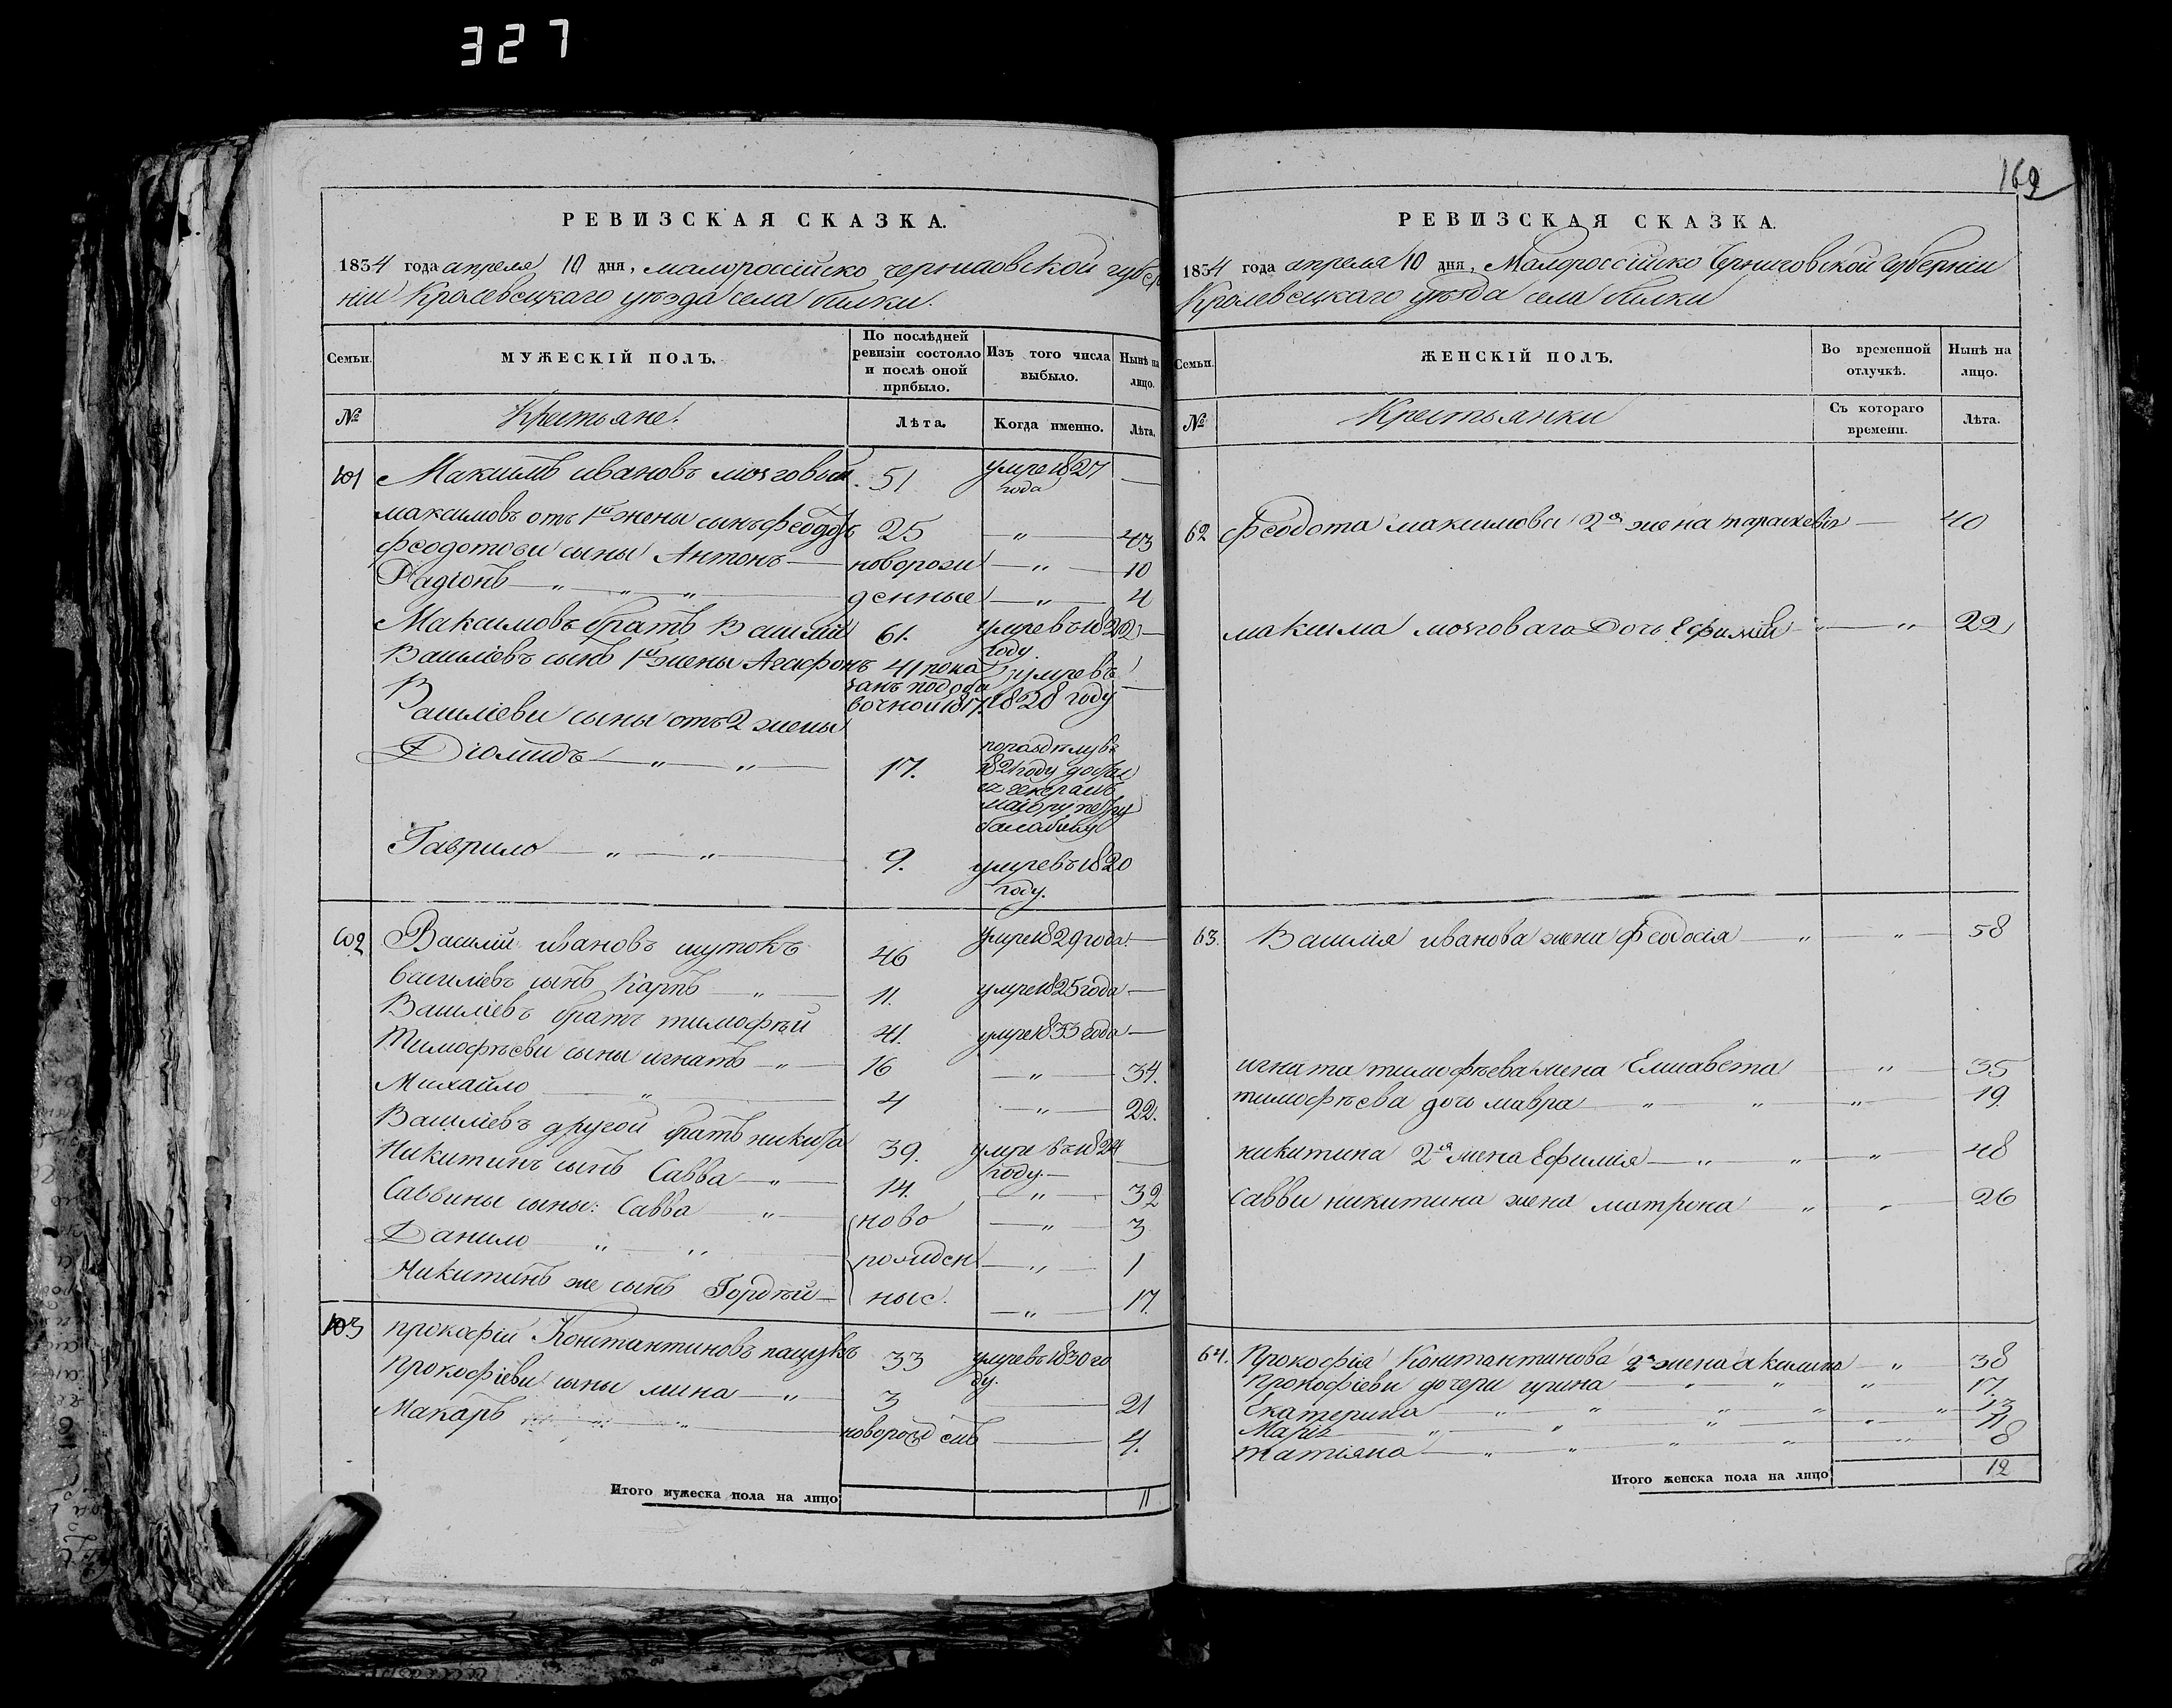 327
РЕВИЗСКАЯ СКАЗКА.
1834 года апреля 10 дня, малороссійско черниговской губер
ніи Кролевецкаго уезда села билки.
Семьи.
МУЖЕСКІЙ ПОЛЪ.
По послѣдней ревизіи состояло и послѣ оной прибыло.
Изъ того числа выбыло.
Нынѣ на лицо.
№
Крестьяне.
Лѣта.
Когда именно.
Лѣта.
101 Максимъ ивановъ мозговый 51 умре 1827 —
года
максимовъ отъ 1й жены сынъ феодотъ 25 — „ — 43
феодотови сыны Антонъ — новорож — „ — 10
Радіонъ — „ — „ — „ — денные — „ — 4
Максимовъ братъ Василій 61. умре въ 1822 —
году.
Василіевъ сынъ 1й жены Агафонъ 41 пока умре въ
занъ подода
вочной 1817. 1828 году —
Василіеви сыны отъ 2 жены
Діомидъ — „ — „ — 17. поразделу въ
1821 году
генералъ
маіору
балабину
Гаврило — „ — „ — 9. умре въ 1820
году.
102 Василій ивановъ шутокъ 46 умре 1829 года. —
василіевъ сынъ Карпъ — „ — 11. умре 1825 года —
Василіевъ братъ тимофѣй 41. умре 1833 года —
Тимофѣеви сыны игнатъ — „ — 16 — „ — 34.
Михайло — „ — 4 — „ — 22.
Василіевъ другой братъ никита 39. умре въ 1824 —
году. —
Никитинъ сынъ Савва — „ — 14. — „ — 32
Саввины сыны: Савва — „ — ново — „ — 3
Данило — „ — „ — рожден — „ — 1
Никитинъ же сынъ Гордѣй — ные. — „ — 17.
103 прокофій Константиновъ пацукъ 33 умре въ 1830 го
ду.
Прокофіеви сыны мина — „ — 3 — 21
Макаръ — „ — „ — — 4.
Итого мужеска пола на лицо 11
169
РЕВИЗСКАЯ СКАЗКА.
1834 года апреля 10 дня, Малороссійско Черниговской Губерніи
Кролевецкаго уезда села билки
Семьи.
ЖЕНСКІЙ ПОЛЪ.
Во временной отлучкѣ.
Нынѣ на лицо.
№
Крестьянки
Съ котораго времени.
Лѣта.
62 феодота максимова 2я жена параскевія — 40
максима мозговаго дочь Ефимія — „ — „ — 22
63. Василія иванова жена Феодосія — „ — „ — 58
игната тимофѣева жена Елисавета — „ — 35
тимофѣева дочь мавра — „ — „ — „ — 19.
никитина 2я жена Ефимія — „ — „ — „ — 48
саввы никитина жена матрона — „ — „ — 26
64. Прокофія Константинова 2я жена акилина — „ — 38
Прокофіеви дочери ирина — „ — „ — „ — 17.
Екатерина — „ — „ — „ — „ — „ — 13
Марія — „ — „ — „ — „ — 11
татіяна — „ — „ — „ — „ — „ — 8
Итого женска пола на лицо 12